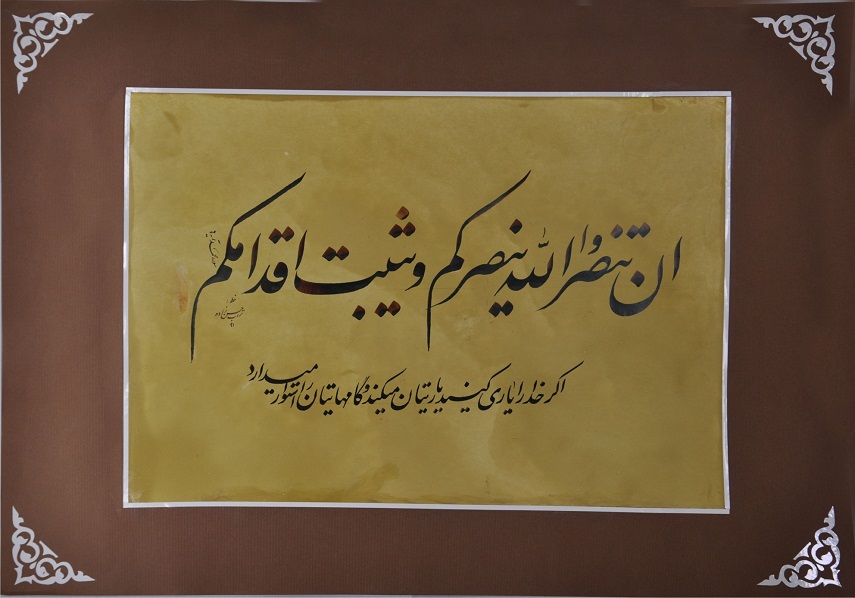 ان تنصروا الله ینصرکم و یثبت اقدامکم
اگر خدا را یاری کنید یاریتان میکند و گامهایتان را استوار میدارد